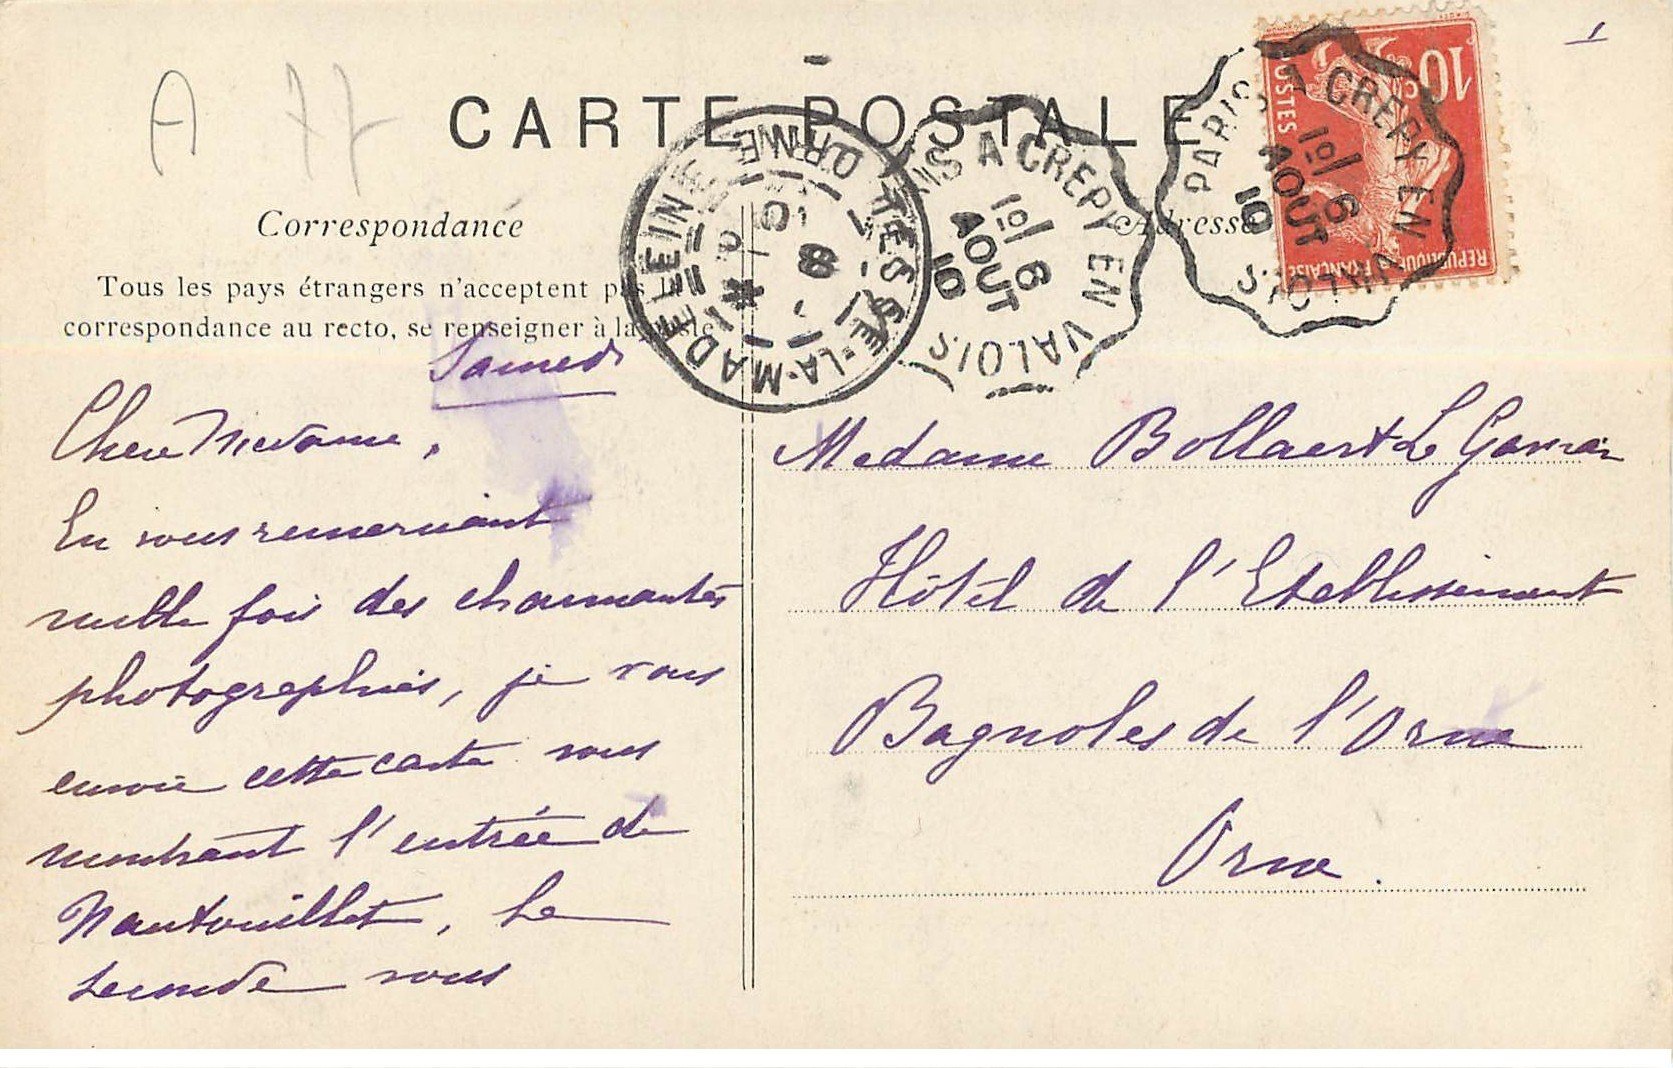 A 77
1
CARTE POSTALE
Correspondance
Adresse
Tous les pays étrangers n'acceptent pas la
correspondance au recto, se renseigner à la poste
TESSÉ-LA-MADELEINE ORNE
PARIS A CREPY EN VALOIS
1º/ 6
AOUT
10
PARIS A CREPY EN VALOIS
1º/ 6
AOUT
10
10c
POSTES
REPUBLIQUE FRANÇAISE
Samedi
Chère Madame,
En vous remerciant
mille fois des charmantes
photographies, je vous
envoie cette carte vous
montrant l'entrée de
Nantouillet, la
seconde vous
Madame Bollaert Le
Hôtel de l'Etablissement
Bagnoles de l'Orne
Orne.